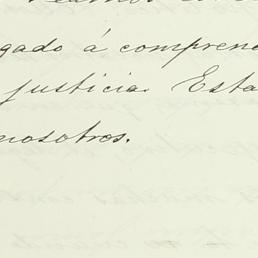 gado á comprend
justicia. Esta
nosotros.